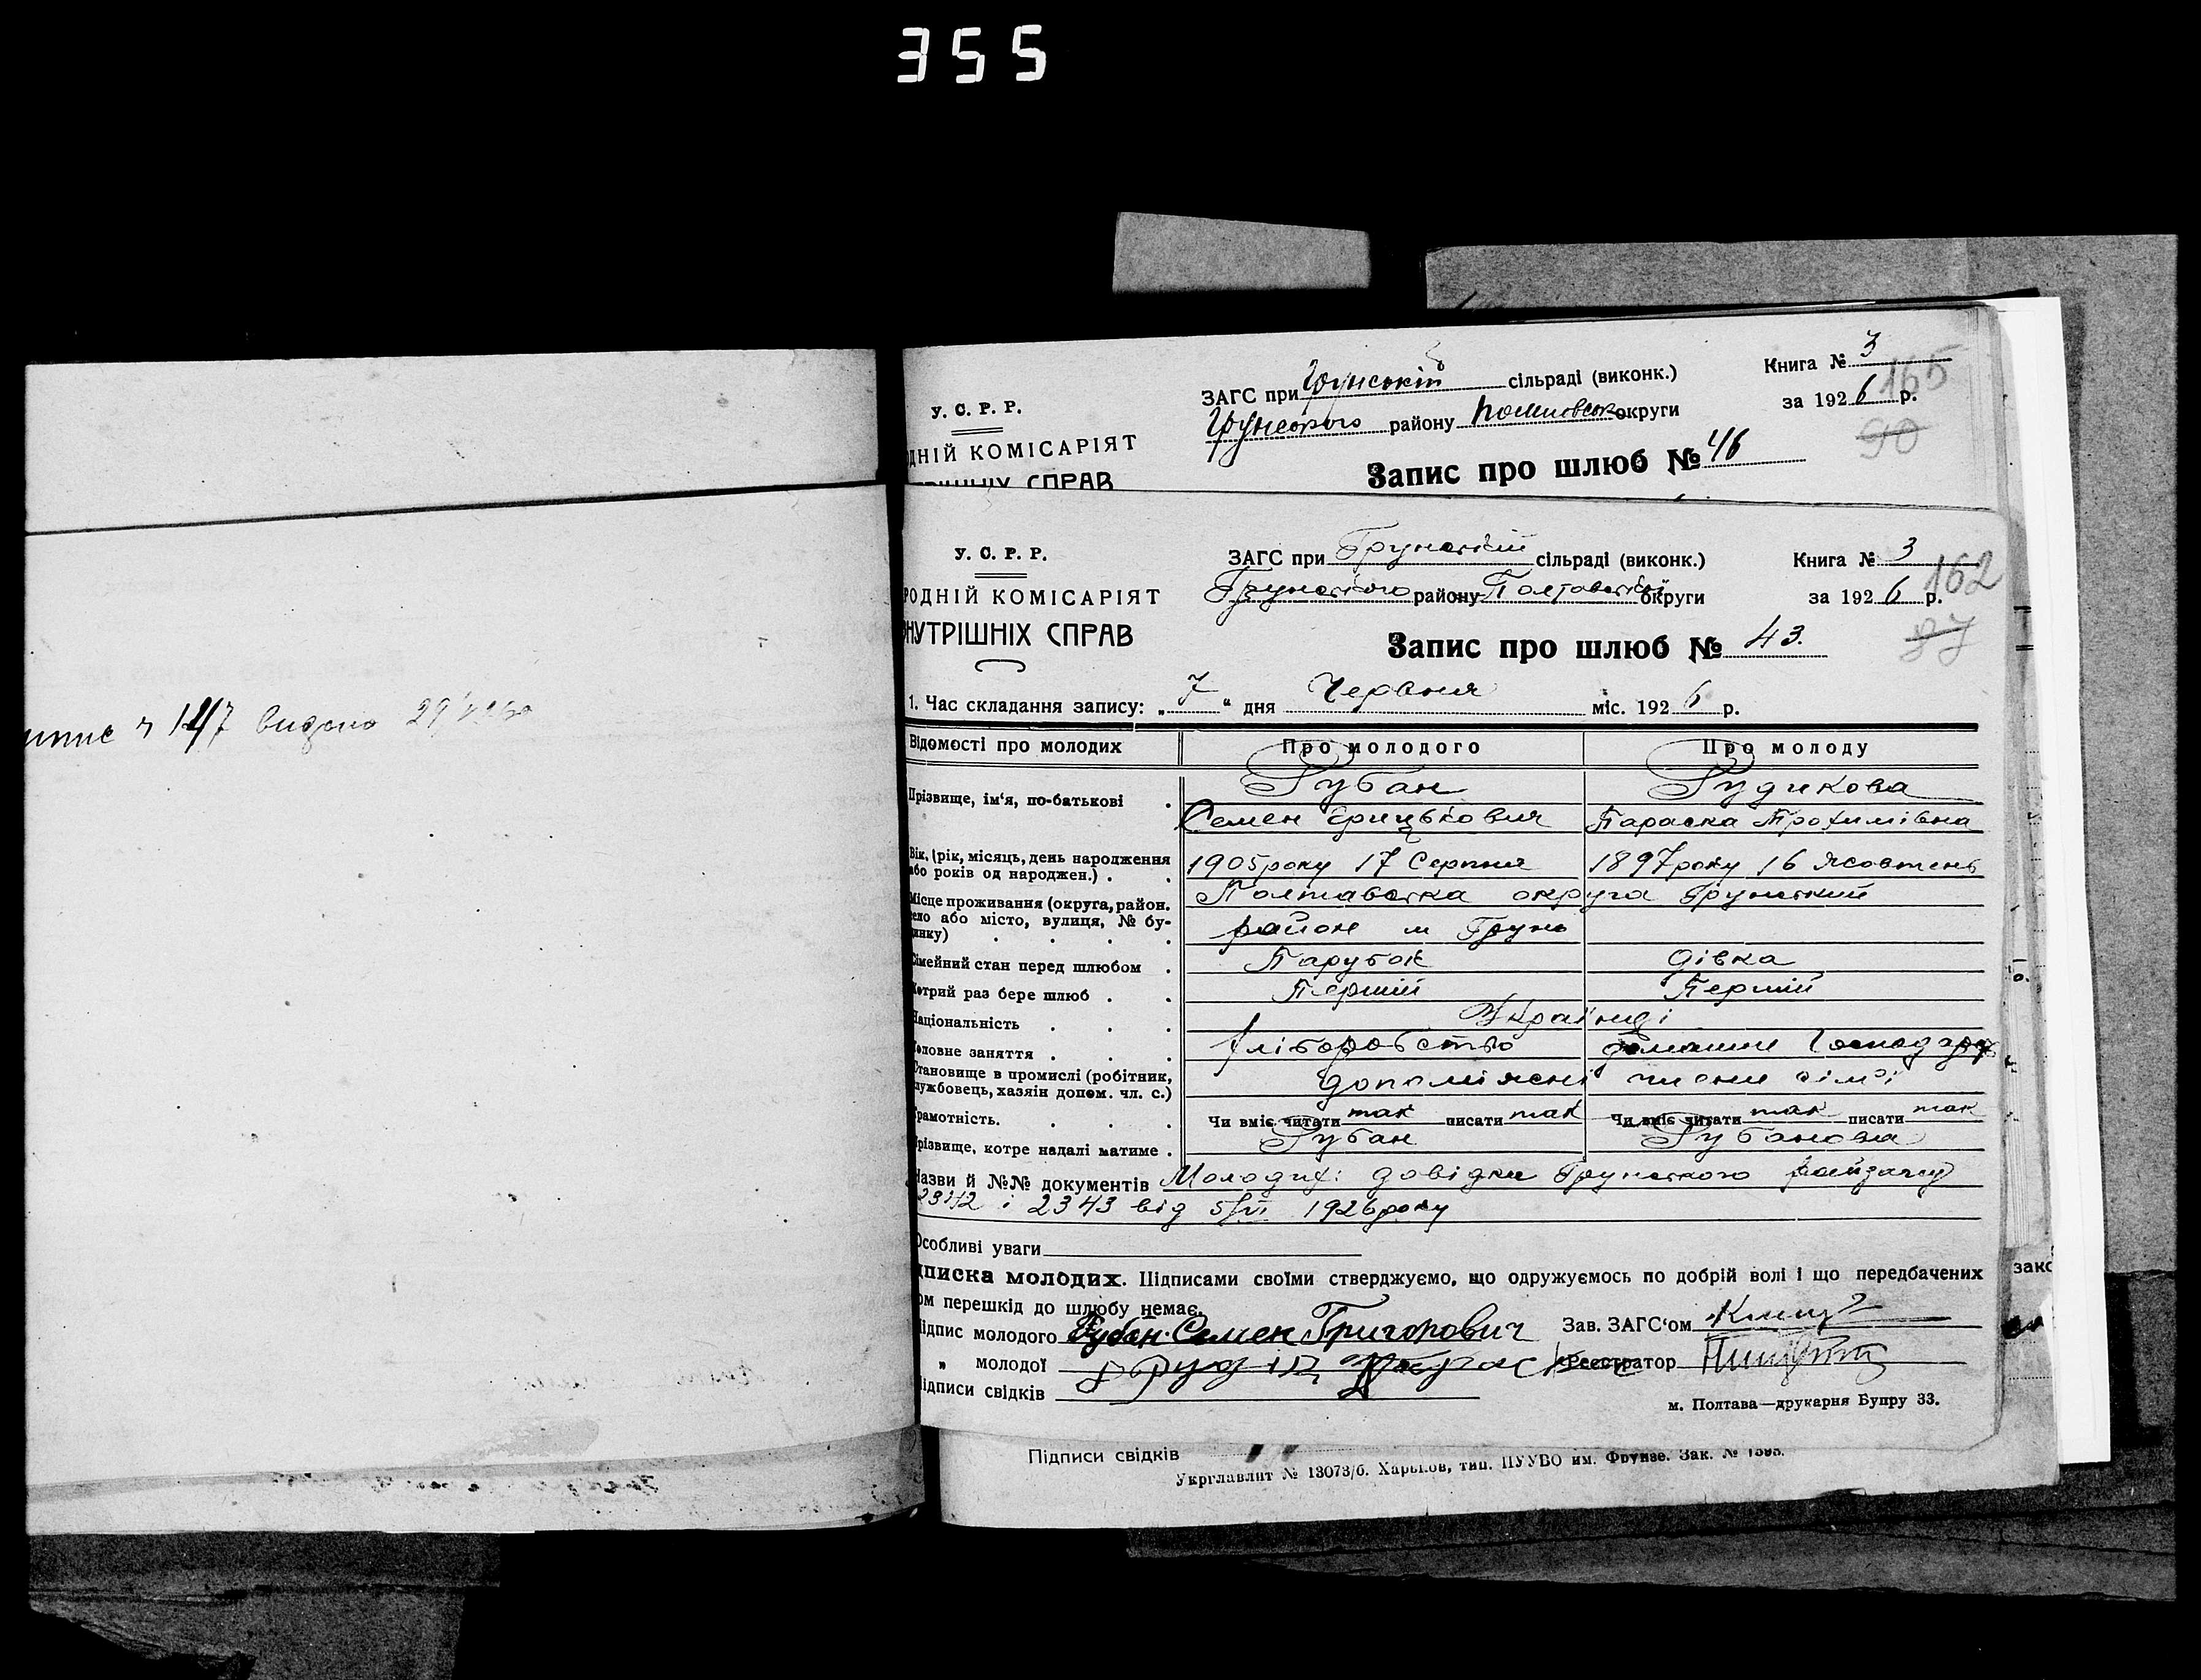 355
У. С. Р. Р.
ДНІЙ КОМІСАРІЯТ
СПРАВ
ЗАГС при Грунській сільраді (виконк.)
Грунського району округи
Книга № 3
за 1926 р.
165
90
Запис про шлюб № 46
видано 29
У. С. Р. Р.
РОДНІЙ КОМІСАРІЯТ
НУТРІШНІХ СПРАВ
ЗАГС при Грунській сільраді (виконк.)
Грунського району Полтавської округи
Книга № 3
за 1926 р.
162
87
Запис про шлюб № 43.
1. Час складання запису: „7“ дня Червня міс. 1926 р.
Відомості про молодих Про молодого Про молоду
Прізвище, ім'я, по-батькові . Рубан Рудикова
Семен Грицькович Параска Трохимівна
Вік. (рік, місяць, день народження або років од народжен.) . . 1905 року 17 Серпня 1897 року 16 Жовтень
Місце проживання (округа, район. село або місто, вулиця, № будинку) . . . . Полтавська округа Грунський
район м Грунь
Сімейний стан перед шлюбом . Парубок дівка
Котрий раз бере шлюб . . Перший Перший
Національність . . . Українці
Головне заняття . . . хліборобство домашне господар
Становище в промислі (робітник, службовець, хазяін допом. чл. с.) допоміжні члени сімї
Грамотність. . . . Чи вміє читати так писати так Чи вміє читати так писати так
Прізвище, котре надалі матиме . Рубан Рубанова
Назви й №№ документів Молодих: довідки Грунського райзагсу
2342 і 2343 від 5/VI 1926 року
Особливі уваги
дписка молодих. Підписами своїми стверджуємо, що одружуємось по добрій волі і що передбачених
ом перешкід до шлюбу немає.
ідпис молодого Рубан Семен Григорович Зав. ЗАГС'ом
„ молодої Реєстратор
ідписи свідків
м. Полтава—друкарня Бупру 33.
Підписи свідків
Укрглавлит № 13073/б. Харьков, тип. ПУУВО им. Фрунзе. Зак. № 1595.